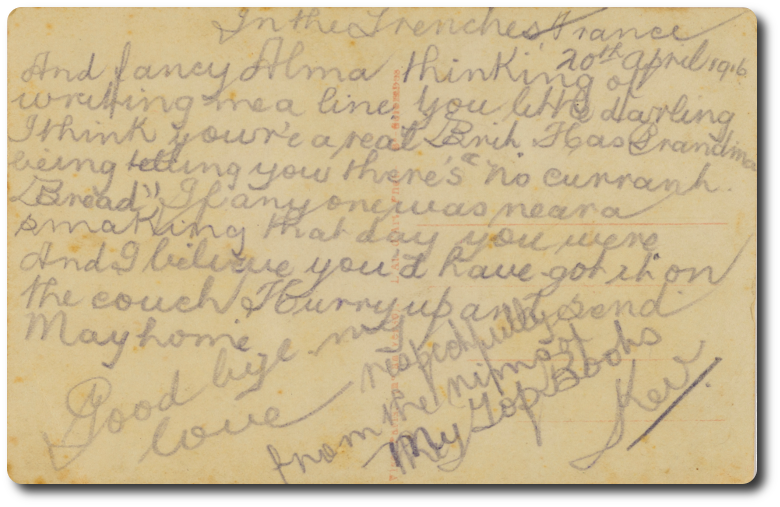 In the Trenches France
20th April 1916
And fancy Alma thinking of
writting me a line, you little darling
I think your'e a real Brik Has Grandma
being telling you there's "no currant
Bread" If any one was near a
smaking that day you were
And I believe you'd have got it on
the couch Hurry up and send
May home
Good bye my
love
respectfully
from the nims of
My Top Boots
Kev